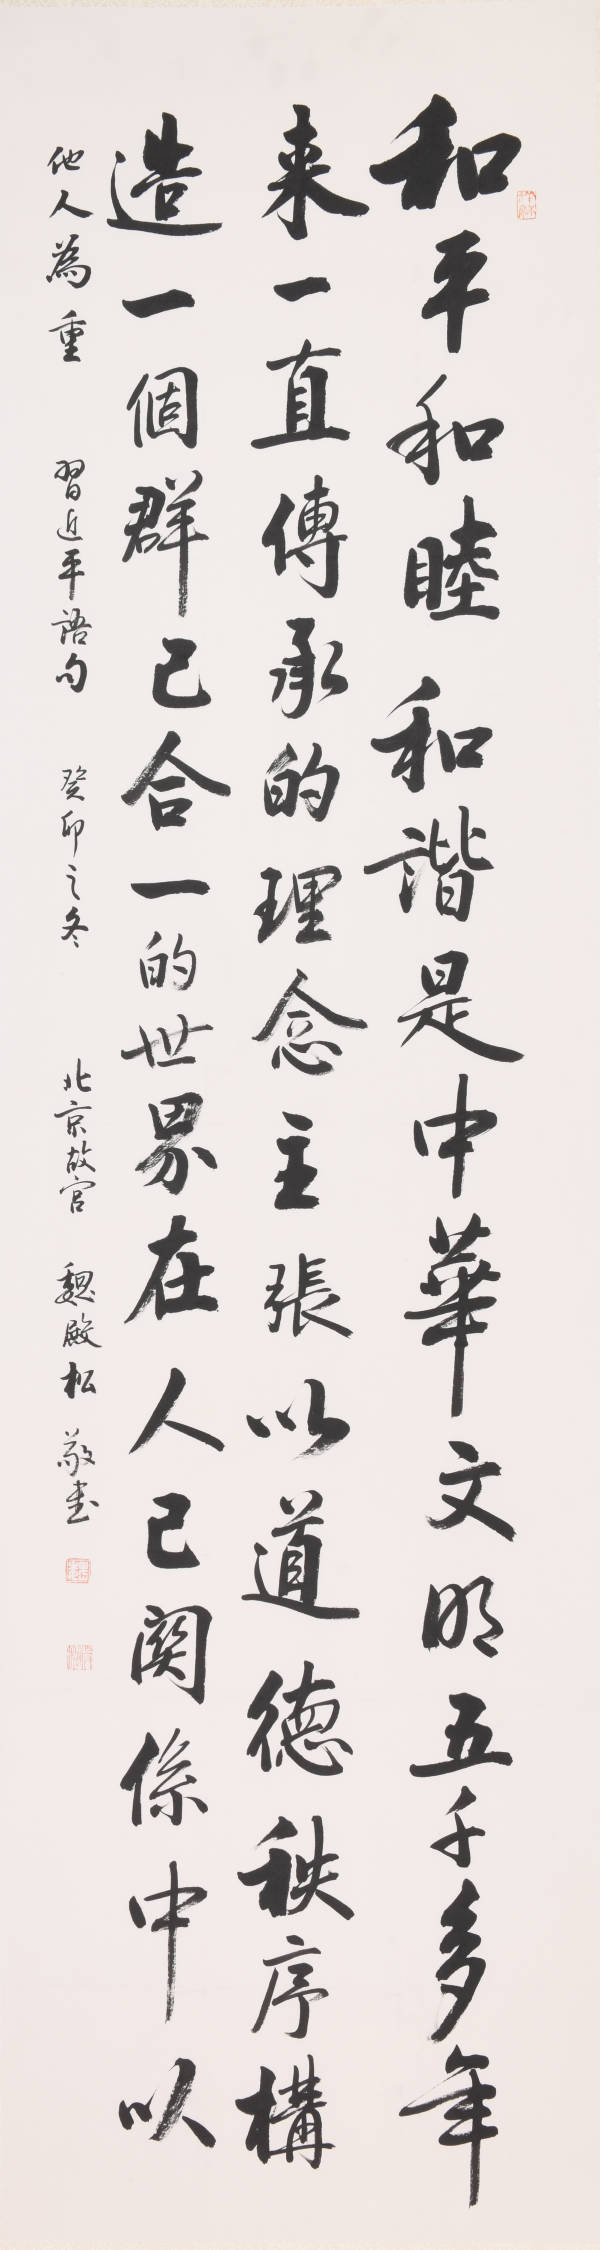 和平和睦和諧是中華文明五千多年
来一直傳承的理念主張以道德秩序構
造一個群己合一的世界在人己関係中以
他人為重　習近平語句　癸卯之冬　北京故宮　魏殿松　敬书